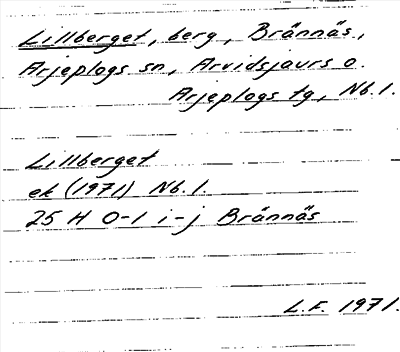 Lillberget, berg, Brännäs,
Arjeplogs sn, Arvidsjaurs o.
Arjeplogs tg, Nb.l.
Lillberget
ek (1971) Nb.l.
25 H 0-1 i-j Brännäs
L.F. 1971.